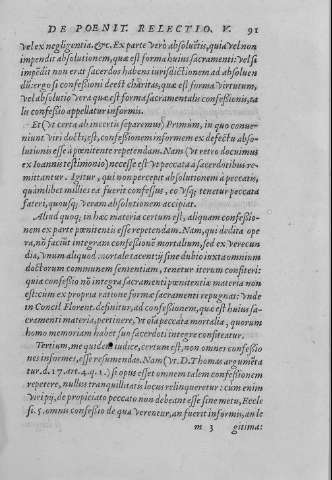 DE POENIT. RELECTIO. V. 91
vel ex negligentia, &c. Ex parte verò absolutis, quia vel non
impendit absolutionem, quæ est forma huius sacramenti: vel si
impedit non erat sacerdos habens iurisdictionem ad absoluen
dũ: ergo si confessioni deest charitas, quæ est forma virtutum,
vel absolutio vera quæ est forma sacramentalis confessionis, ta
lis confessio appellatur informis.
Et (vt certa ab incertis separemus) Primùm, in quo conue-
niunt viri docti, est, confessionem informem ex defectu abso-
lutionis esse à pœnitente repetendam. Nam (vt retro docuimus
ex Ioannis testimonio) necesse est vt peccata à sacerdotibus re-
mittantur. Igitur, qui non percepit absolutionem à peccatis,
quamlibet millies ea fuerit confessus, eo vsq; tenetur peccata
fateri, quousq; veram absolutionem accipiat.
Aliud quoq; in hac materia certum est, aliquam confessio-
nem ex parte pœnitentis esse repetendam. Nam, qui dedita ope
ra, nõ faciũt integram confessionẽ mortalium, sed ex verecun
dia, vnum aliquod mortale tacent: sine dubio iuxta omnium
doctorum communem sententiam, tenetur iterum confiteri:
quia confessio nõ integra sacramenti pœnitentiæ materia non
est: cùm ex propria ratione formæ sacramenti repugnat: vnde
in Concil Florent. definitur, ad confessionem, quæ est huius sa-
cramenti materia, pertinere, vt oĩa peccata mortalia, quorum
homo memoriam habet suo sacerdoti integre confiteatur.
Tertium, me quidem iudice, certum est, non omnes confessio
nes informes, esse resumendas. Nam (vt. D. Thomas argumẽta
tur. d. 17. art. 4. q. 1.) si opus esset omnem talem confessionem
repetere, nullus tranquillitatis locus relinqueretur: cum enim
viri pij, de propiciato peccato non debeant esse sine metu, Eccle
si. 5. omnis confessio de qua verentur, an fuerit informis, an le
m 3 gitima: